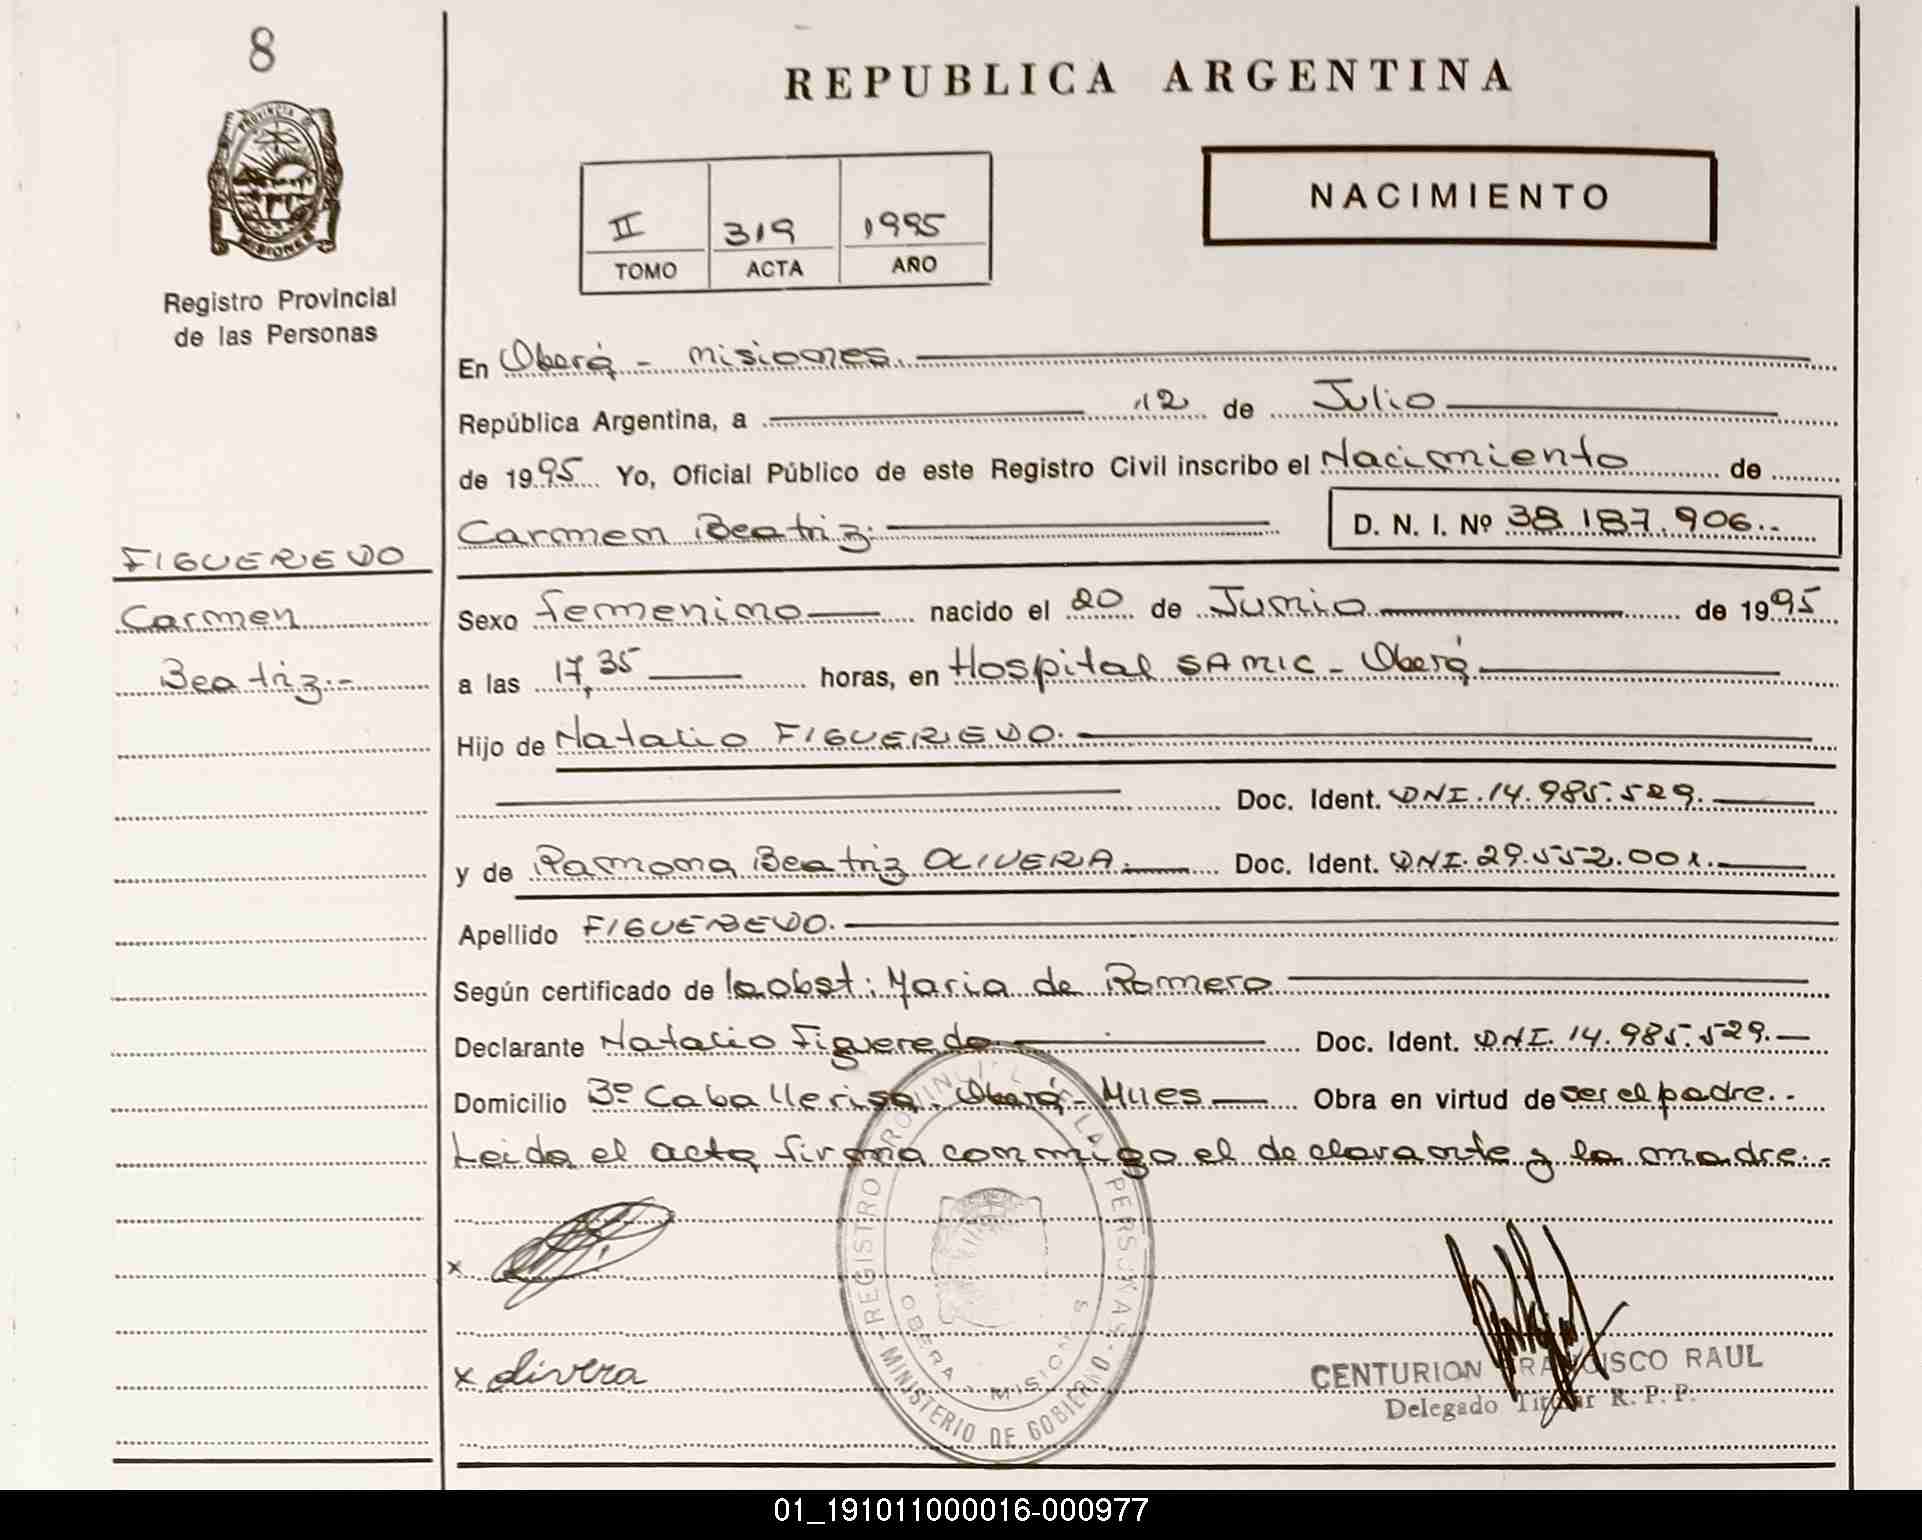 8
REPUBLICA ARGENTINA
PROVINCIA DE
MISIONES
Registro Provincial
de las Personas
II 319 1995
TOMO ACTA AÑO
NACIMIENTO
En Oberá - Misiones.
República Argentina, a 12 de Julio
de 1995 Yo, Oficial Público de este Registro Civil inscribo el Nacimiento de
Carmen Beatriz. D. N. I. Nº 38.187.906.-
FIGUEREDO
Carmen
Beatriz.-
Sexo femenino nacido el 20 de Junio de 1995
a las 17,35 horas, en Hospital SAMIC - Oberá
Hijo de Natalio FIGUEREDO.
Doc. Ident. DNI. 14.985.529.
y de Ramona Beatriz OLIVERA. Doc. Ident. DNI. 29.552.001.
Apellido FIGUEREDO.
Según certificado de la obst: Maria de Romero
Declarante Natalio Figueredo Doc. Ident. DNI. 14.985.529.-
Domicilio 3º Caballeriza. Oberá - Mnes Obra en virtud de ser el padre.-
Leida el acta firma conmigo el declarante y la madre.-
x
x Olivera
REGISTRO PROVINCIAL DE LAS PERSONAS - MINISTERIO DE GOBIERNO -
OBERA - MISIONES
CENTURION FRANCISCO RAUL
Delegado Titular R. P. P.
01_191011000016-000977